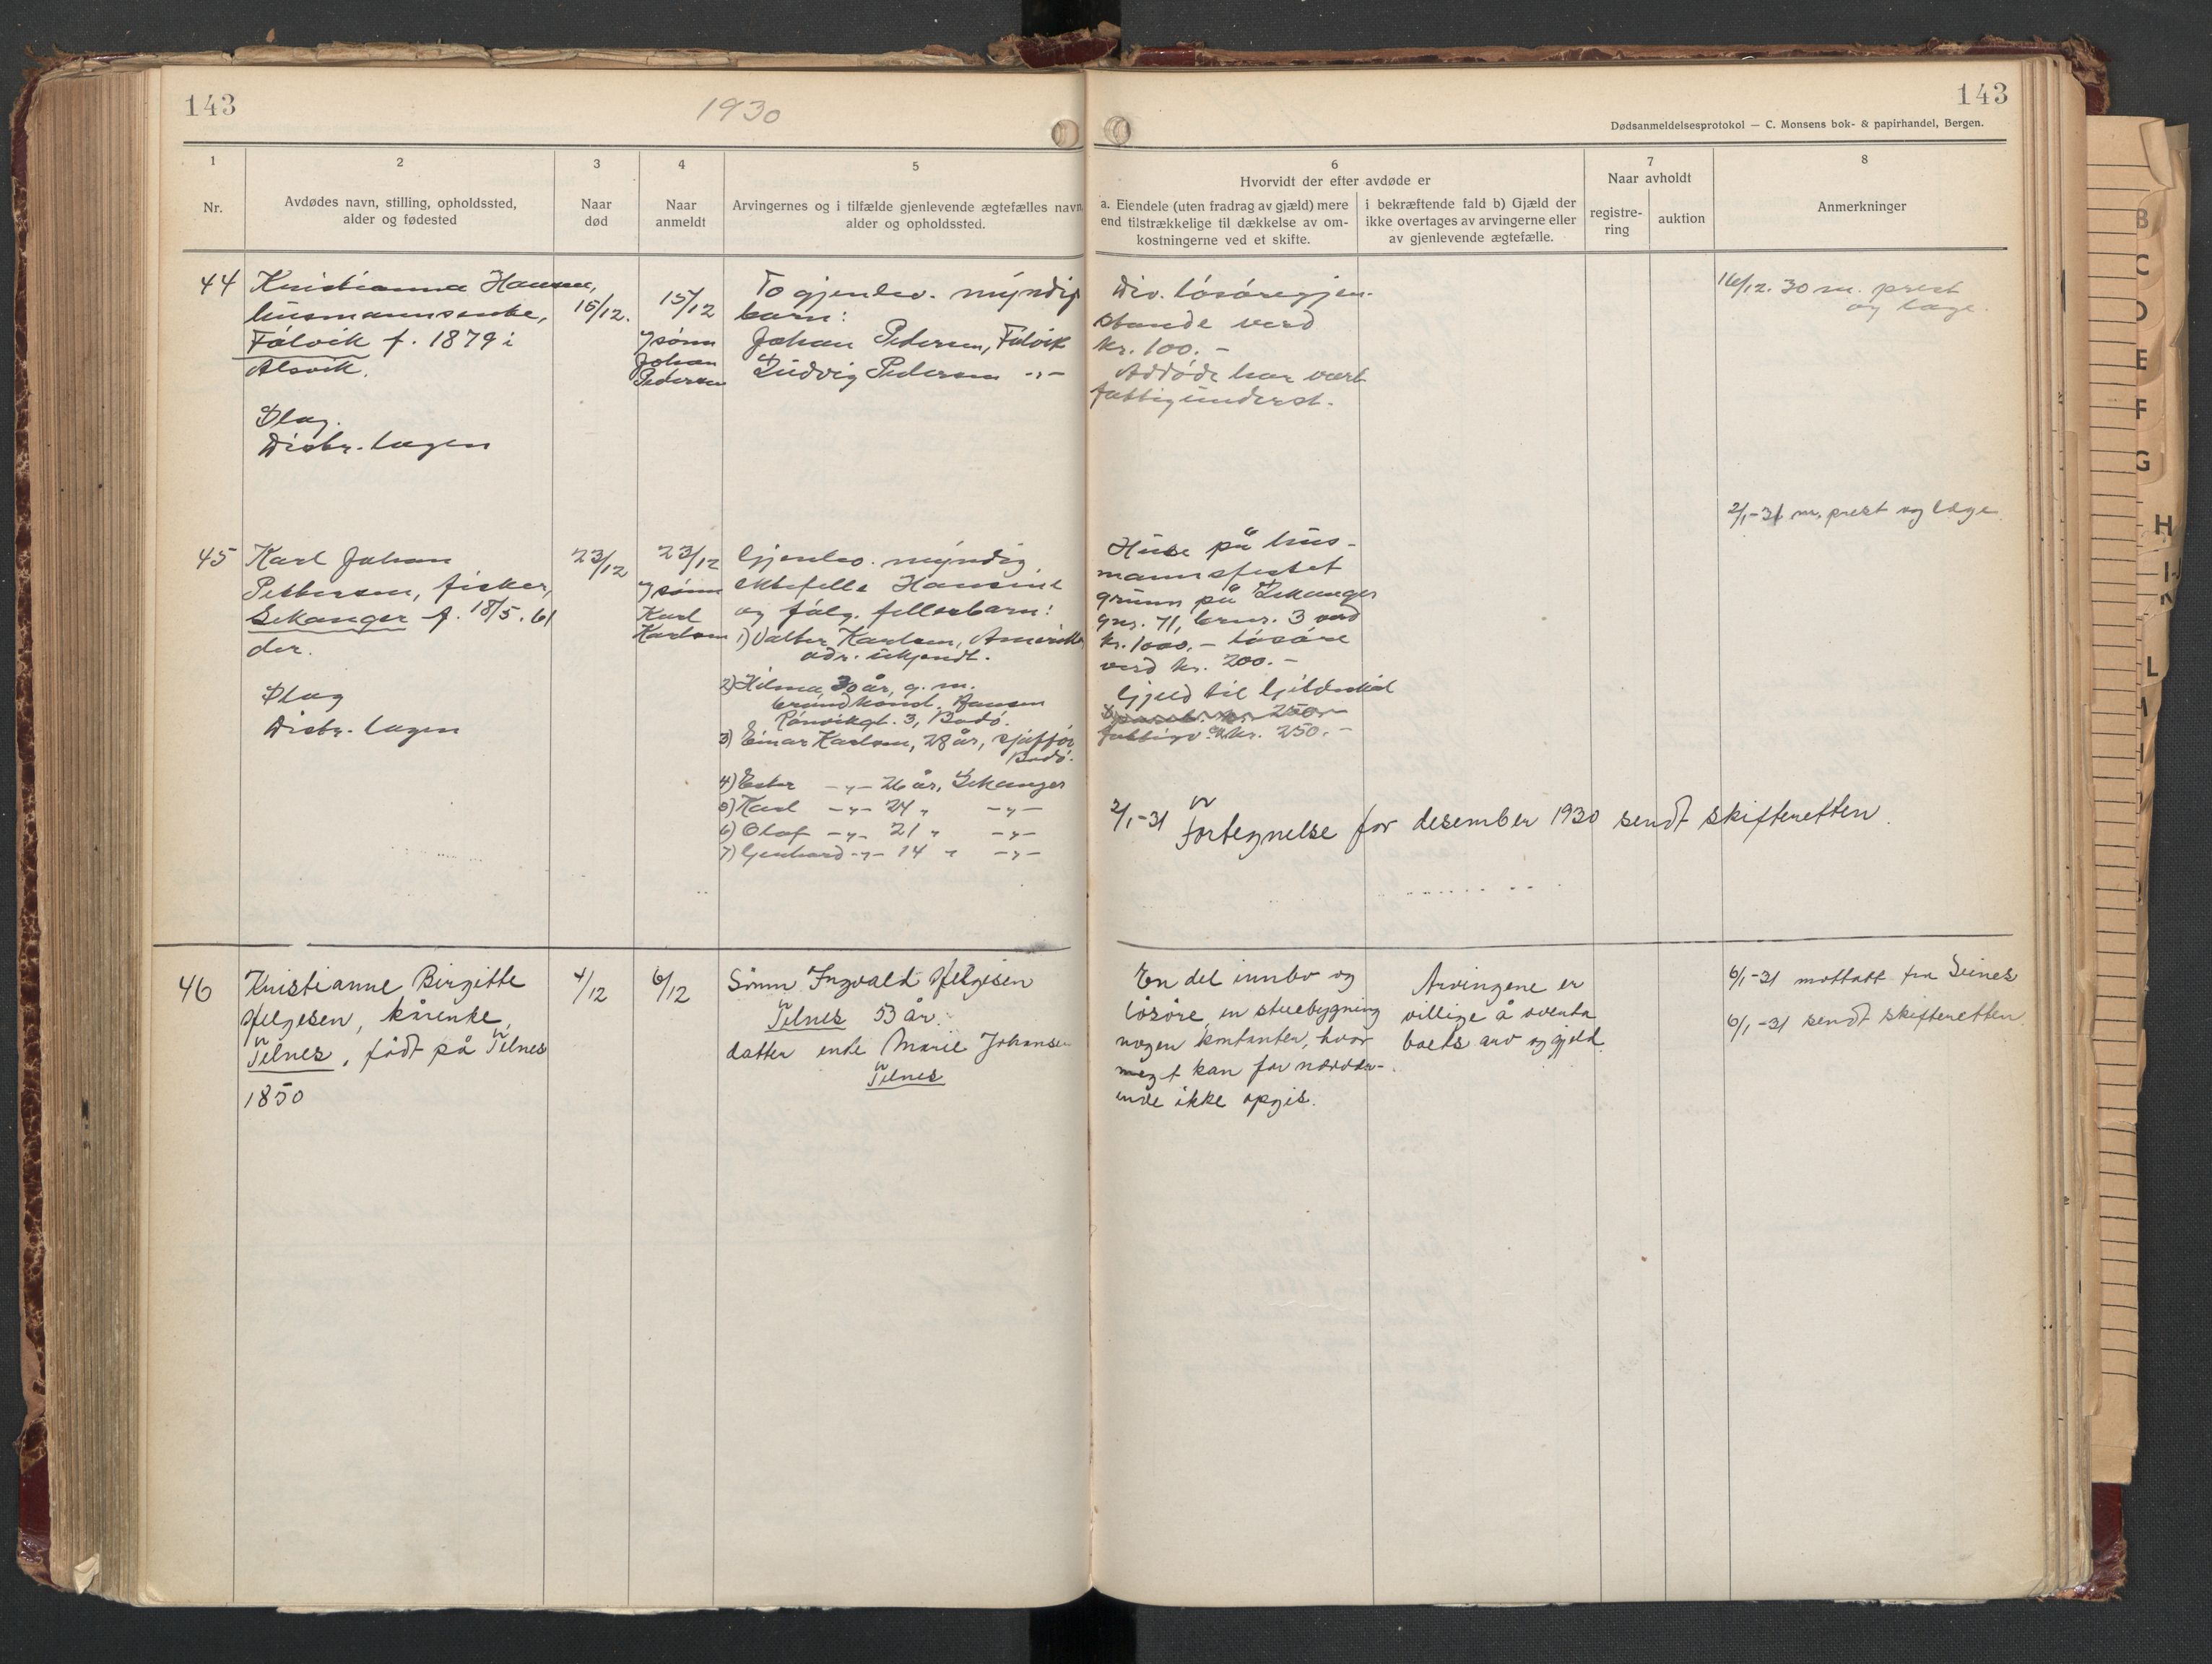 143
1930
143
Dødsanmeldelsesprotokol — C. Monsens bok- & papirhandel, Bergen.
1
Nr.
2
Avdødes navn, stilling, opholdssted,
alder og fødested
3
Naar
død
4
Naar
anmeldt
5
Arvingernes og i tilfælde gjenlevende ægtefælles navn,
alder og opholdssted.
6
Hvorvidt der efter avdøde er
a. Eiendele (uten fradrag av gjæld) mere
end tilstrækkelige til dækkelse av om-
kostningerne ved et skifte.
i bekræftende fald b) Gjæld der
ikke overtages av arvingerne eller
av gjenlevende ægtefælle.
7
Naar avholdt
registre-
ring
auktion
8
Anmerkninger
44
Kristianna Hansen,
husmannsenke,
Fálvik f. 1879 i
Alsvik.
Distr. lægen
15/12.
15/12
v/sønn
Johan
Pedersen
To gjenlev. myndig
barn:
Johan Pedersen, Fálvik
Ludvig Pedersen -"-
Div. løsøregjen-
stande verd
kr. 100.-
Avdøde har vært
fattigunderst.
16/12. 30 m. prest
og læge.
45
Karl Johan
Pettersen, fisker,
Sekanger f. 18/5. 61
der.
Distr. lægen
23/12
23/12
v/sønn
Karl
Karlsen
Gjenlev. myndig
ektefelle Hansine
og følg. fellesbarn:
1) Valter Karlsen, Amerika
adr. ukjendt.
2) Hilma, 30 år, g. m.
brandkonst. Hansen
Rønvikgt. 3, Bodø.
3) Einar Karlsen, 28 år, sjåffør
Bodø.
4) Ester -"- 26 år, Sekanger
5) Karl -"- 24 " -"-
6) Olaf -"- 21 " -"-
7) Gerhard -"- 14 " -"-
Huse på hus-
mannsfestet
grunn på Sekanger
gnr. 71, brnr. 3 verd
kr. 1000.- løsøre
verd kr. 200.-
Gjeld til Gildeskål
250.-
fattigv. kr. 250.-
2/1-31 m. prest og læge.
2/1-31 Fortegnelse for desember 1930 sendt skifteretten.
46
Kristianne Birgitte
Helgesen, kårenke,
Telnes, født på Telnes
1850
4/12
6/12
Sønn Ingvald Helgesen
Telnes 53 år.
datter enke Marie Johansen
Telnes
En del innbo og
løsøre, en stuebygning
nogen kontanter, hvor
meget kan for nærvær-
ende ikke opgis.
Arvingene er
villige å overta
boets arv og gjeld.
6/1-31 mottatt fra Seines
6/1-31 sendt skifteretten.
B
C
D
E
F
G
H
I
J
K
L